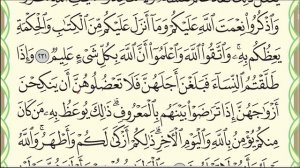 وَاذْكُرُوا نِعْمَتَ اللَّهِ عَلَيْكُمْ وَمَا أَنزَلَ عَلَيْكُم مِّنَ الْكِتَابِ وَالْحِكْمَةِ
يَعِظُكُم بِهِ ۚ وَاتَّقُوا اللَّهَ وَاعْلَمُوا أَنَّ اللَّهَ بِكُلِّ شَيْءٍ عَلِيمٌ ﴿٢٣١﴾ وَإِذَا
طَلَّقْتُمُ النِّسَاءَ فَبَلَغْنَ أَجَلَهُنَّ فَلَا تَعْضُلُوهُنَّ أَن يَنكِحْنَ
أَزْوَاجَهُنَّ إِذَا تَرَاضَوْا بَيْنَهُم بِالْمَعْرُوفِ ۗ ذَٰلِكَ يُوعَظُ بِهِ مَن كَانَ
مِنكُمْ يُؤْمِنُ بِاللَّهِ وَالْيَوْمِ الْآخِرِ ۗ ذَٰلِكُمْ أَزْكَىٰ لَكُمْ وَأَطْهَرُ ۗ وَاللَّهُ